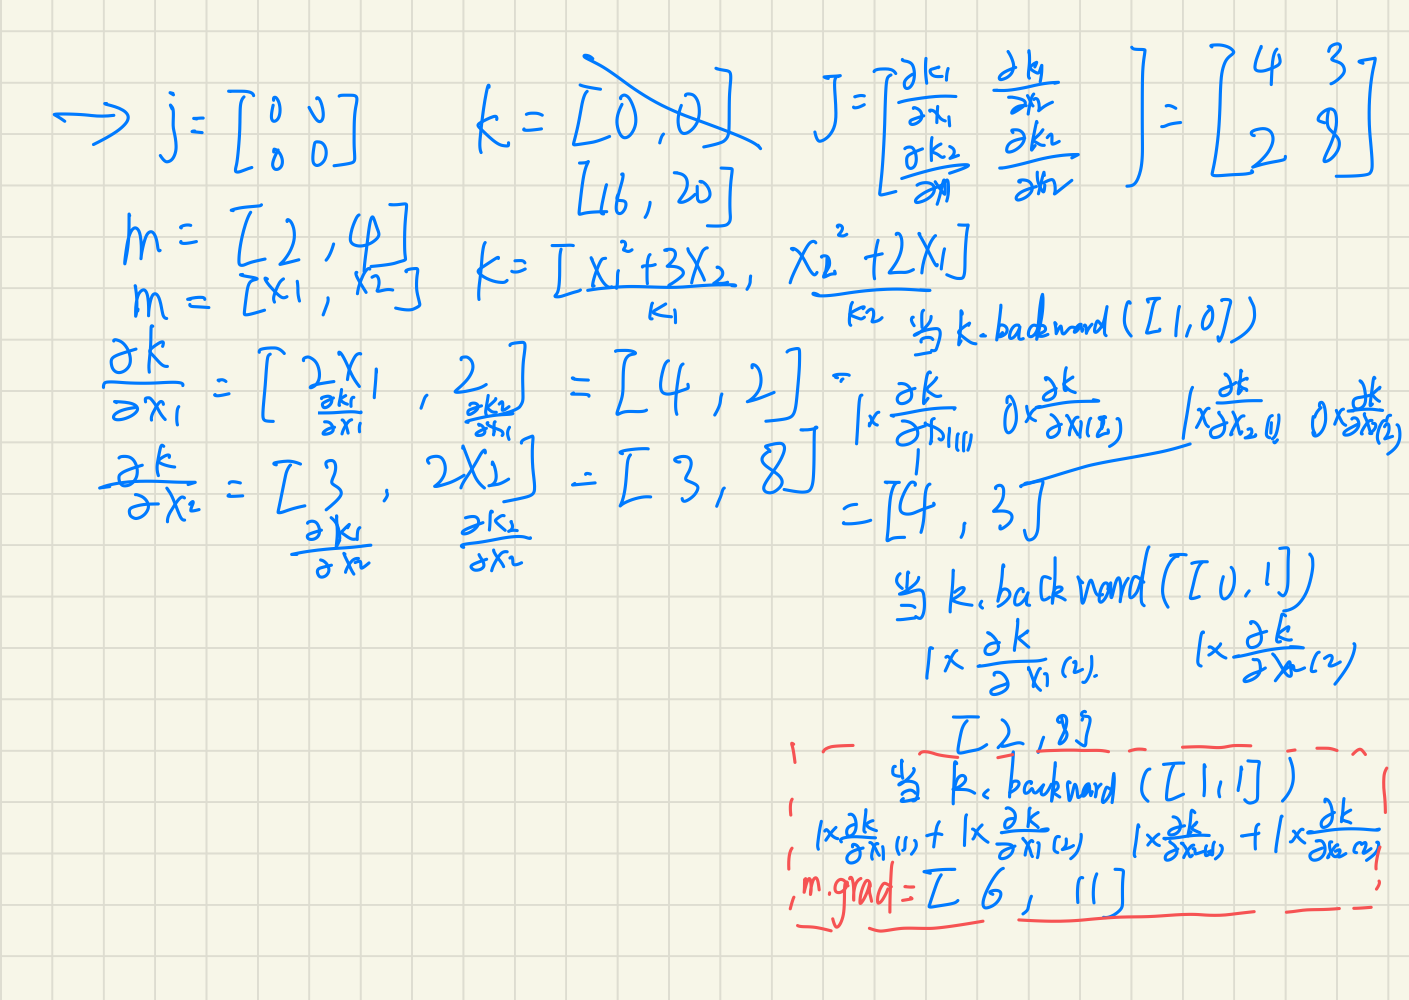 → j = [0 0
0 0]
k = [0, 0]
[16, 20]
J = [∂k1/∂x1 ∂k1/∂x2
∂k2/∂x1 ∂k2/∂x2] = [4 3
2 8]
m = [2, 4]
m = [x1, x2]
k = [x1² + 3x2, x2² + 2x1]
k1 k2
∂k/∂x1 = [2x1, 2] = [4, 2]
∂k1/∂x1 ∂k2/∂x1
∂k/∂x2 = [3, 2x2] = [3, 8]
∂k1/∂x2 ∂k2/∂x2
当 k.backward([1,0])
1×∂k/∂x1(1) 0×∂k/∂x1(2) 1×∂k/∂x2(1) 0×∂k/∂x2(2)
= [4, 3]
当 k.backward([0,1])
1×∂k/∂x1(2) 1×∂k/∂x2(2)
[2, 8]
当 k.backward([1,1])
1×∂k/∂x1(1) + 1×∂k/∂x1(2) 1×∂k/∂x2(1) + 1×∂k/∂x2(2)
m.grad = [6, 11]